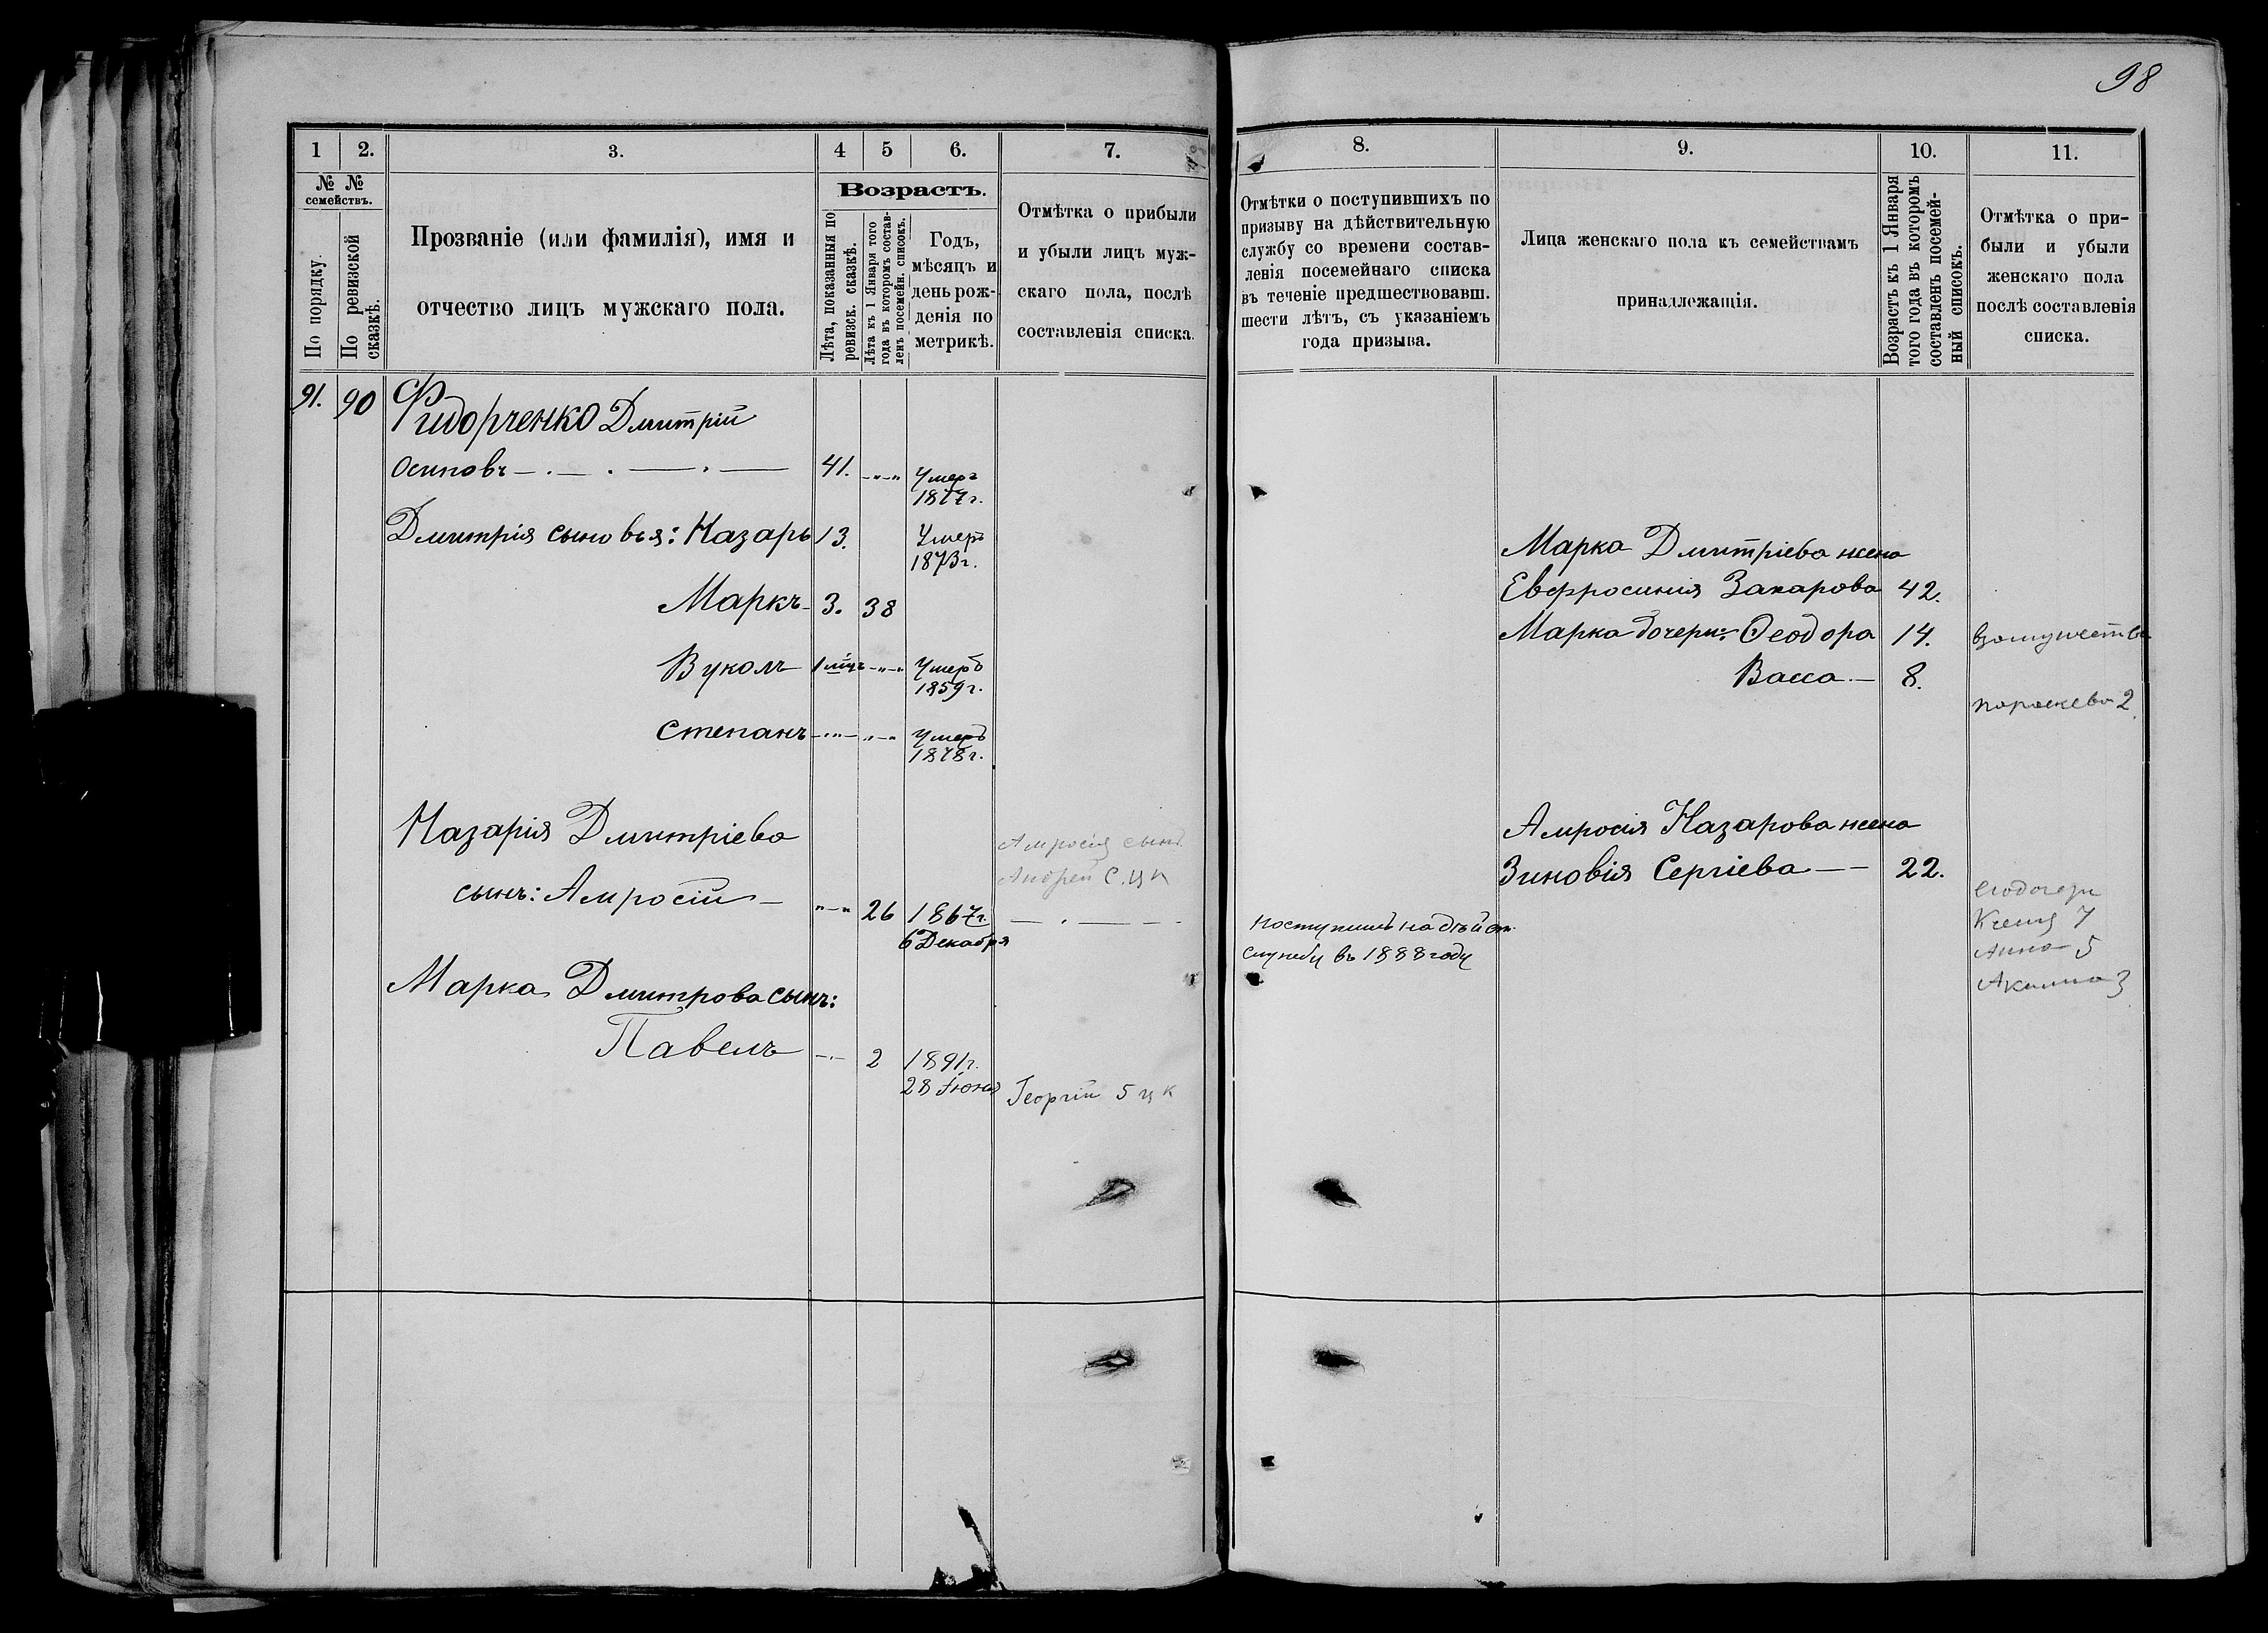 98
1 2. 3. 4 5 6. 7.
№ № семействъ.
По порядку.
По ревизской сказкѣ.
Прозваніе (или фамилія), имя и
отчество лицъ мужскаго пола.
Возрастъ.
Лѣта, показанныя по ревизск. сказкѣ.
Лѣта къ 1 Января того года въ которомъ составленъ посемейн. списокъ.
Годъ,
мѣсяцъ и
день рож-
денія по
метрикѣ.
Отмѣтка о прибыли
и убыли лицъ муж-
скаго пола, послѣ
составленія списка.
91. 90 Фидорченко Дмитрій
Осиповъ 41. Умеръ
1877г.
Дмитрія сыновья: Назаръ 13. Умеръ
1873г.
Маркъ 3. 38
Вуколъ 1 мѣц. Умеръ
1859г.
Степанъ Умеръ
1878г.
Назарія Дмитріева
сынъ: Амросій 26 1867г.
6 Декабря
Амросія сынъ
Андрей
Марка Дмитрова сынъ:
Павелъ 2 1891г.
28 Іюня
Георгій 5
8. 9. 10. 11.
Отмѣтки о поступившихъ по
призыву на дѣйствительную
службу со времени состав-
ленія посемейнаго списка
въ теченіе предшествовавш.
шести лѣтъ, съ указаніемъ
года призыва.
Лица женскаго пола къ семействамъ
принадлежащія.
Возрастъ къ 1 Января
того года въ которомъ
составленъ посемей-
ный списокъ.
Отмѣтка о при-
были и убыли
женскаго пола
послѣ составленія
списка.
Марка Дмитріева жена
Евфросинія Захарова 42.
Марка дочери: Ѳеодора 14. взамужеств
Васса 8.
Параскева 2
Амросія Назарова жена
Зиновія Сергіева 22.
его дочери
Ксенія 7
Анна 5
Акилина 3
поступилъ на дѣйст.
службу въ 1888 году